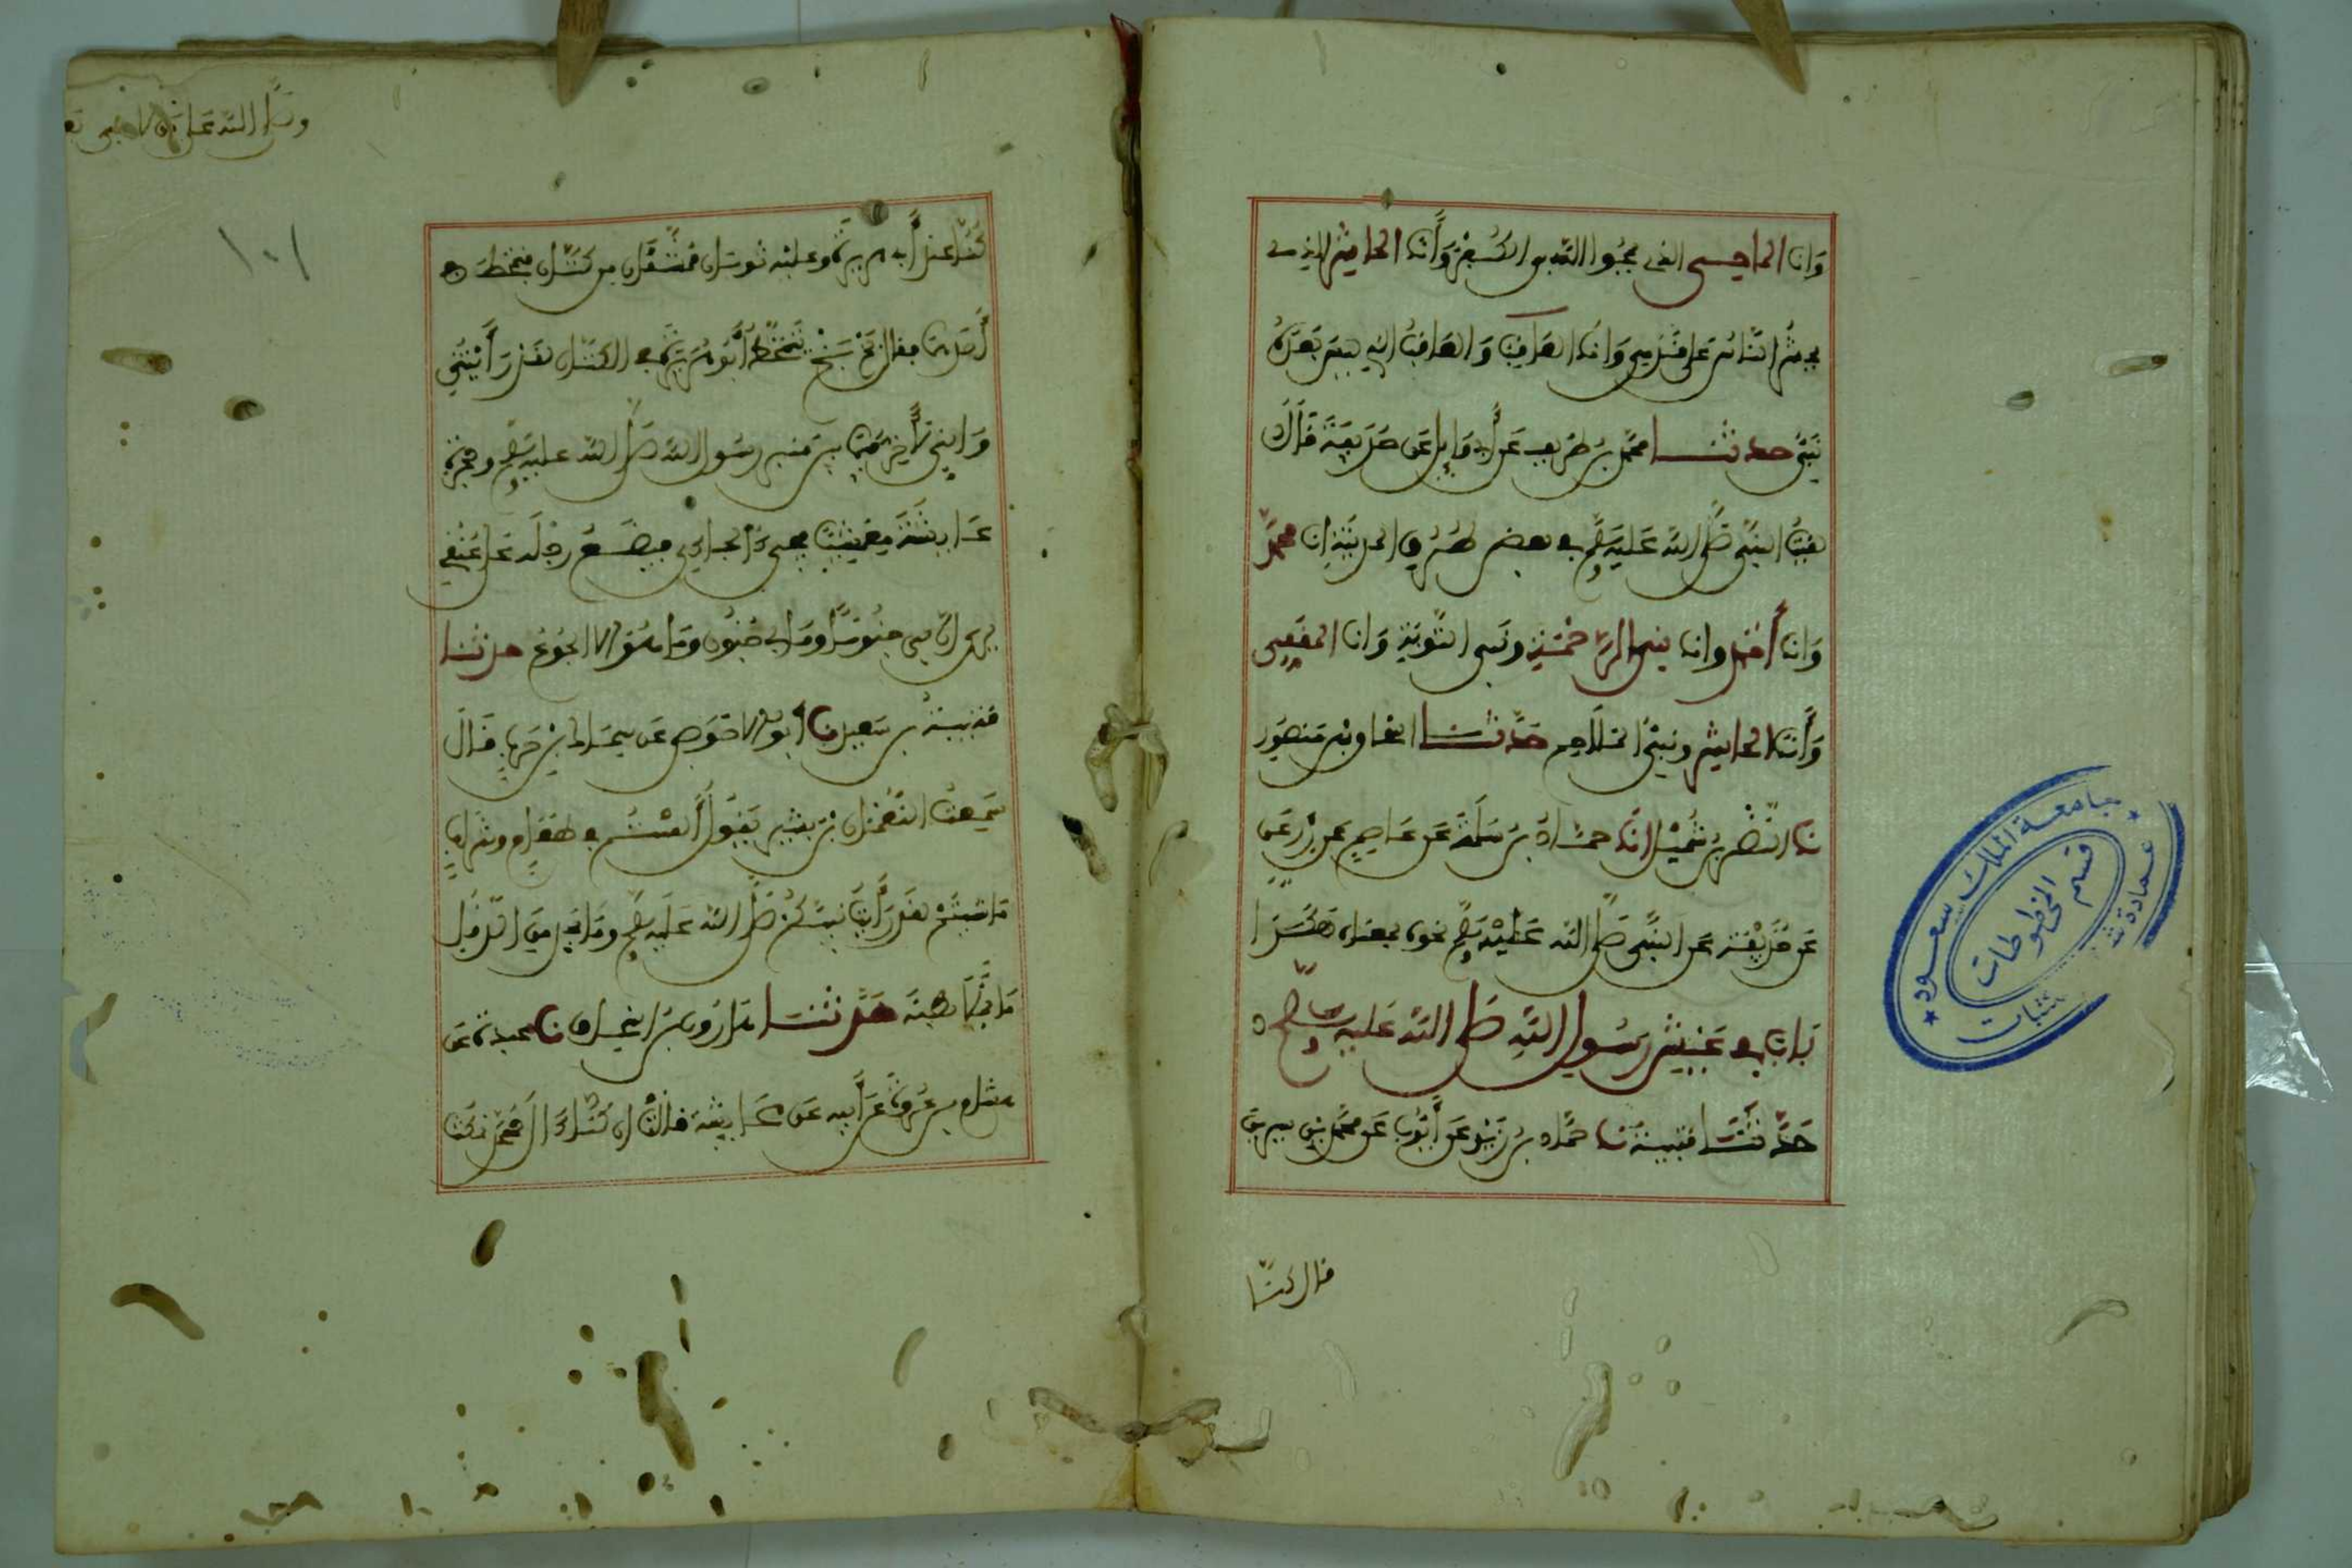 وَانا الماحي الذي يمحُوا الله بي الكُفرَ وَأَنا الحاشر الذي
يحشرُ الناسُ على قدمي وَانا العاقب وَالعاقبُ الذي ليسَ بَعدهُ
نَبيٌّ حدثنا محمد بنُ طريف عن أبي بكر عَن أبي وايل عَن حذيفةَ قَالَ
لقيتُ النَّبي صلى الله عَليه وسلم في بعض طُرُق المدينة انا محمدٌ
وَانا أحمد وانا نبي الرَّحْمَة ونَبي التَّوبَة وَانا المقفي
وَأَنا الحاشر ونبيُّ الملاحم حَدَّثنا اسحاق بن مَنصُور
نا النَّضر بنُ شُمَيْل انا حمادُ بن سَلَمَة عَن عَاصم عَن زِر عَن
عن حُذَيْفَة عَن النَّبي صلى الله عَلَيْه وسلم نحوه بمعناه هَكَذَا
بَابٌ في عَيش رسُول الله صلى الله عَليه وسلم
حَدَّثَنَا قتيبة نا حمَّاد بن زَيْد عَن أَيُّوبَ عَن محمد بن سيرين
قال كنا
كُنَّا عند أبي هريرة وعليه ثوبان ممشقان من كتان فتمخط في
أحدهما فقال بَخْ بَخْ يتمخط أَبُو هُرَيرة في الكتان لقد رَأَيْتُني
وَإنّي لأخِر فيما بين منبر رسُول الله صلى الله عليه وسلم وحجرة
عَايشَةَ مغشيا فيجيءُ الجاءي فيضَعُ رجلَه على عُنُقي
يُرى أن بي جنُونا وَما بي جُنُون وَما هُوَ إلا الجُوعُ حدثنا
قتيبةُ بن سَعيد نا أبو الأحوَص عَن سماك بن حَرب قَالَ
سَمعتُ النُّعْمَان بنَ بشير يَقُولُ أَلستُم في طعَام وشراب
مَا شئتُمْ لقد رَأَيتُ نبيَّكُمْ صلى الله عَلَيه وسلم وَمَا يجد منَ الدقَل
مَا يملأ بطنَه حَدَّثنا هَارُون بن إسحاق نا عبدة عن
هشام بن عُروَة عَن أَبيه عَن عَايشَة قالتْ ان كُنَّا آلَ محمَّد نمكث
١٠١
جامعة الملك سعود
قسم المخطوطات
عمادة شئون المكتبات